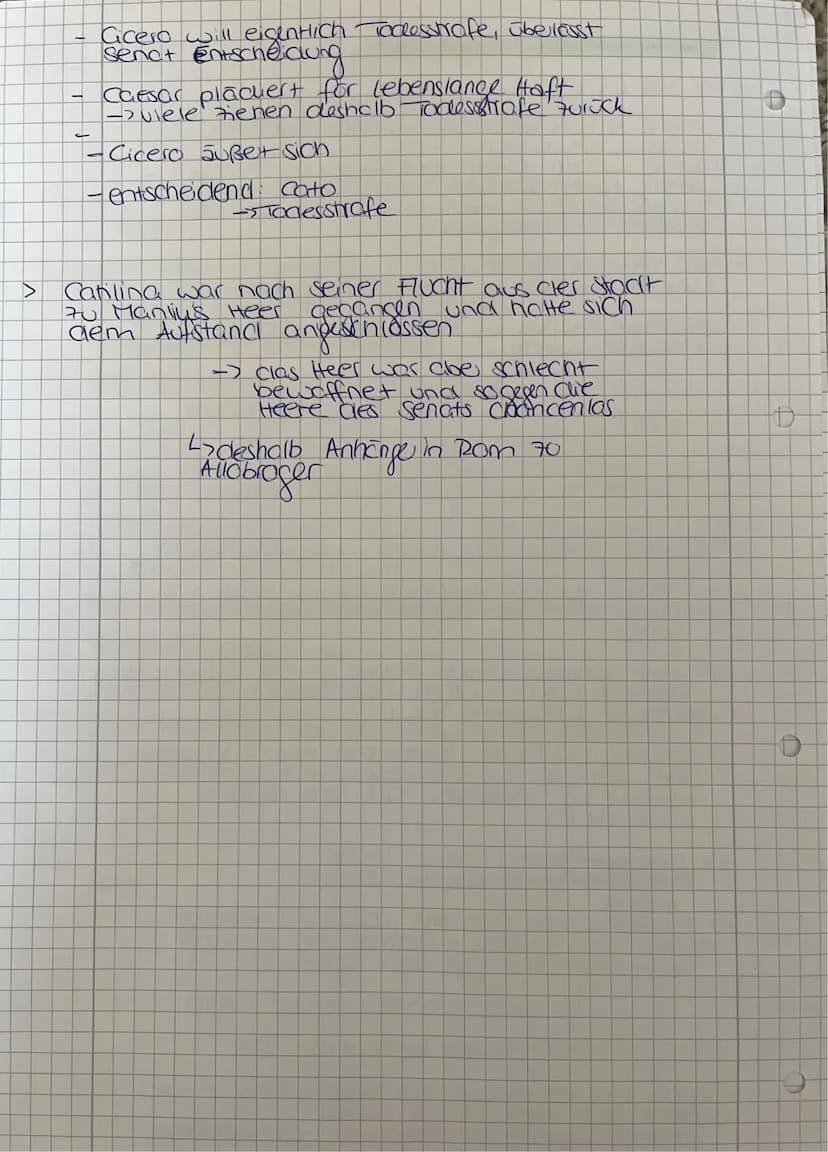 - Cicero will eigentlich Todesstrafe, überlässt
Senat Entscheidung
- Caesar plädiert für lebenslange Haft
-> viele ziehen deshalb Todesstrafe zurück
-
- Cicero äußert sich
- entscheidend: Cato
-> Todesstrafe
> Catilina war nach seiner Flucht aus der Stadt
zu Manlius Heer gegangen und hatte sich
dem Aufstand angeschlossen
-> das Heer war aber schlecht
bewaffnet und so gegen die
Heere des Senats chancenlos
↳ deshalb Anhänge in Rom zo
Allobroger